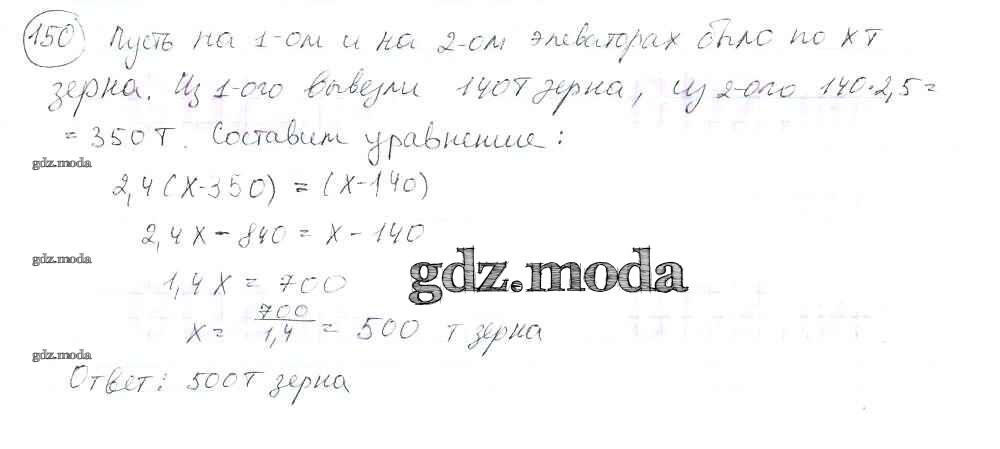 150 Пусть на 1-ом и на 2-ом элеваторах было по х т
зерна. Из 1-ого вывезли 140т зерна, из 2-ого 140·2,5=
= 350 т. Составим уравнение:
gdz.moda
2,4(х-350) = (х-140)
2,4х - 840 = х - 140
gdz.moda
gdz.moda
1,4х = 700
х = 700/1,4 = 500 т зерна
gdz.moda
Ответ: 500т зерна